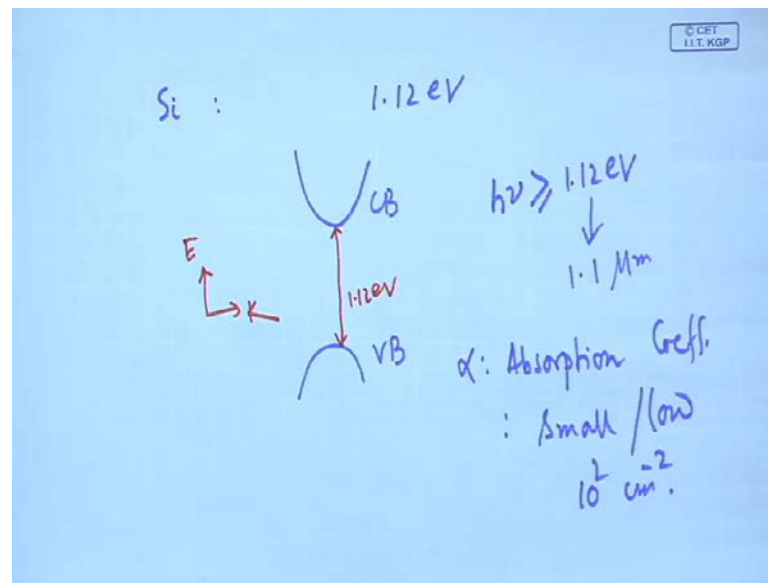 © CET
I.I.T. KGP
Si : 1.12 eV
CB
hν ≥ 1.12 eV
↓
1.1 μm
E
K
1.12 eV
VB
α: Absorption Coeff.
: Small / low
10² cm⁻².